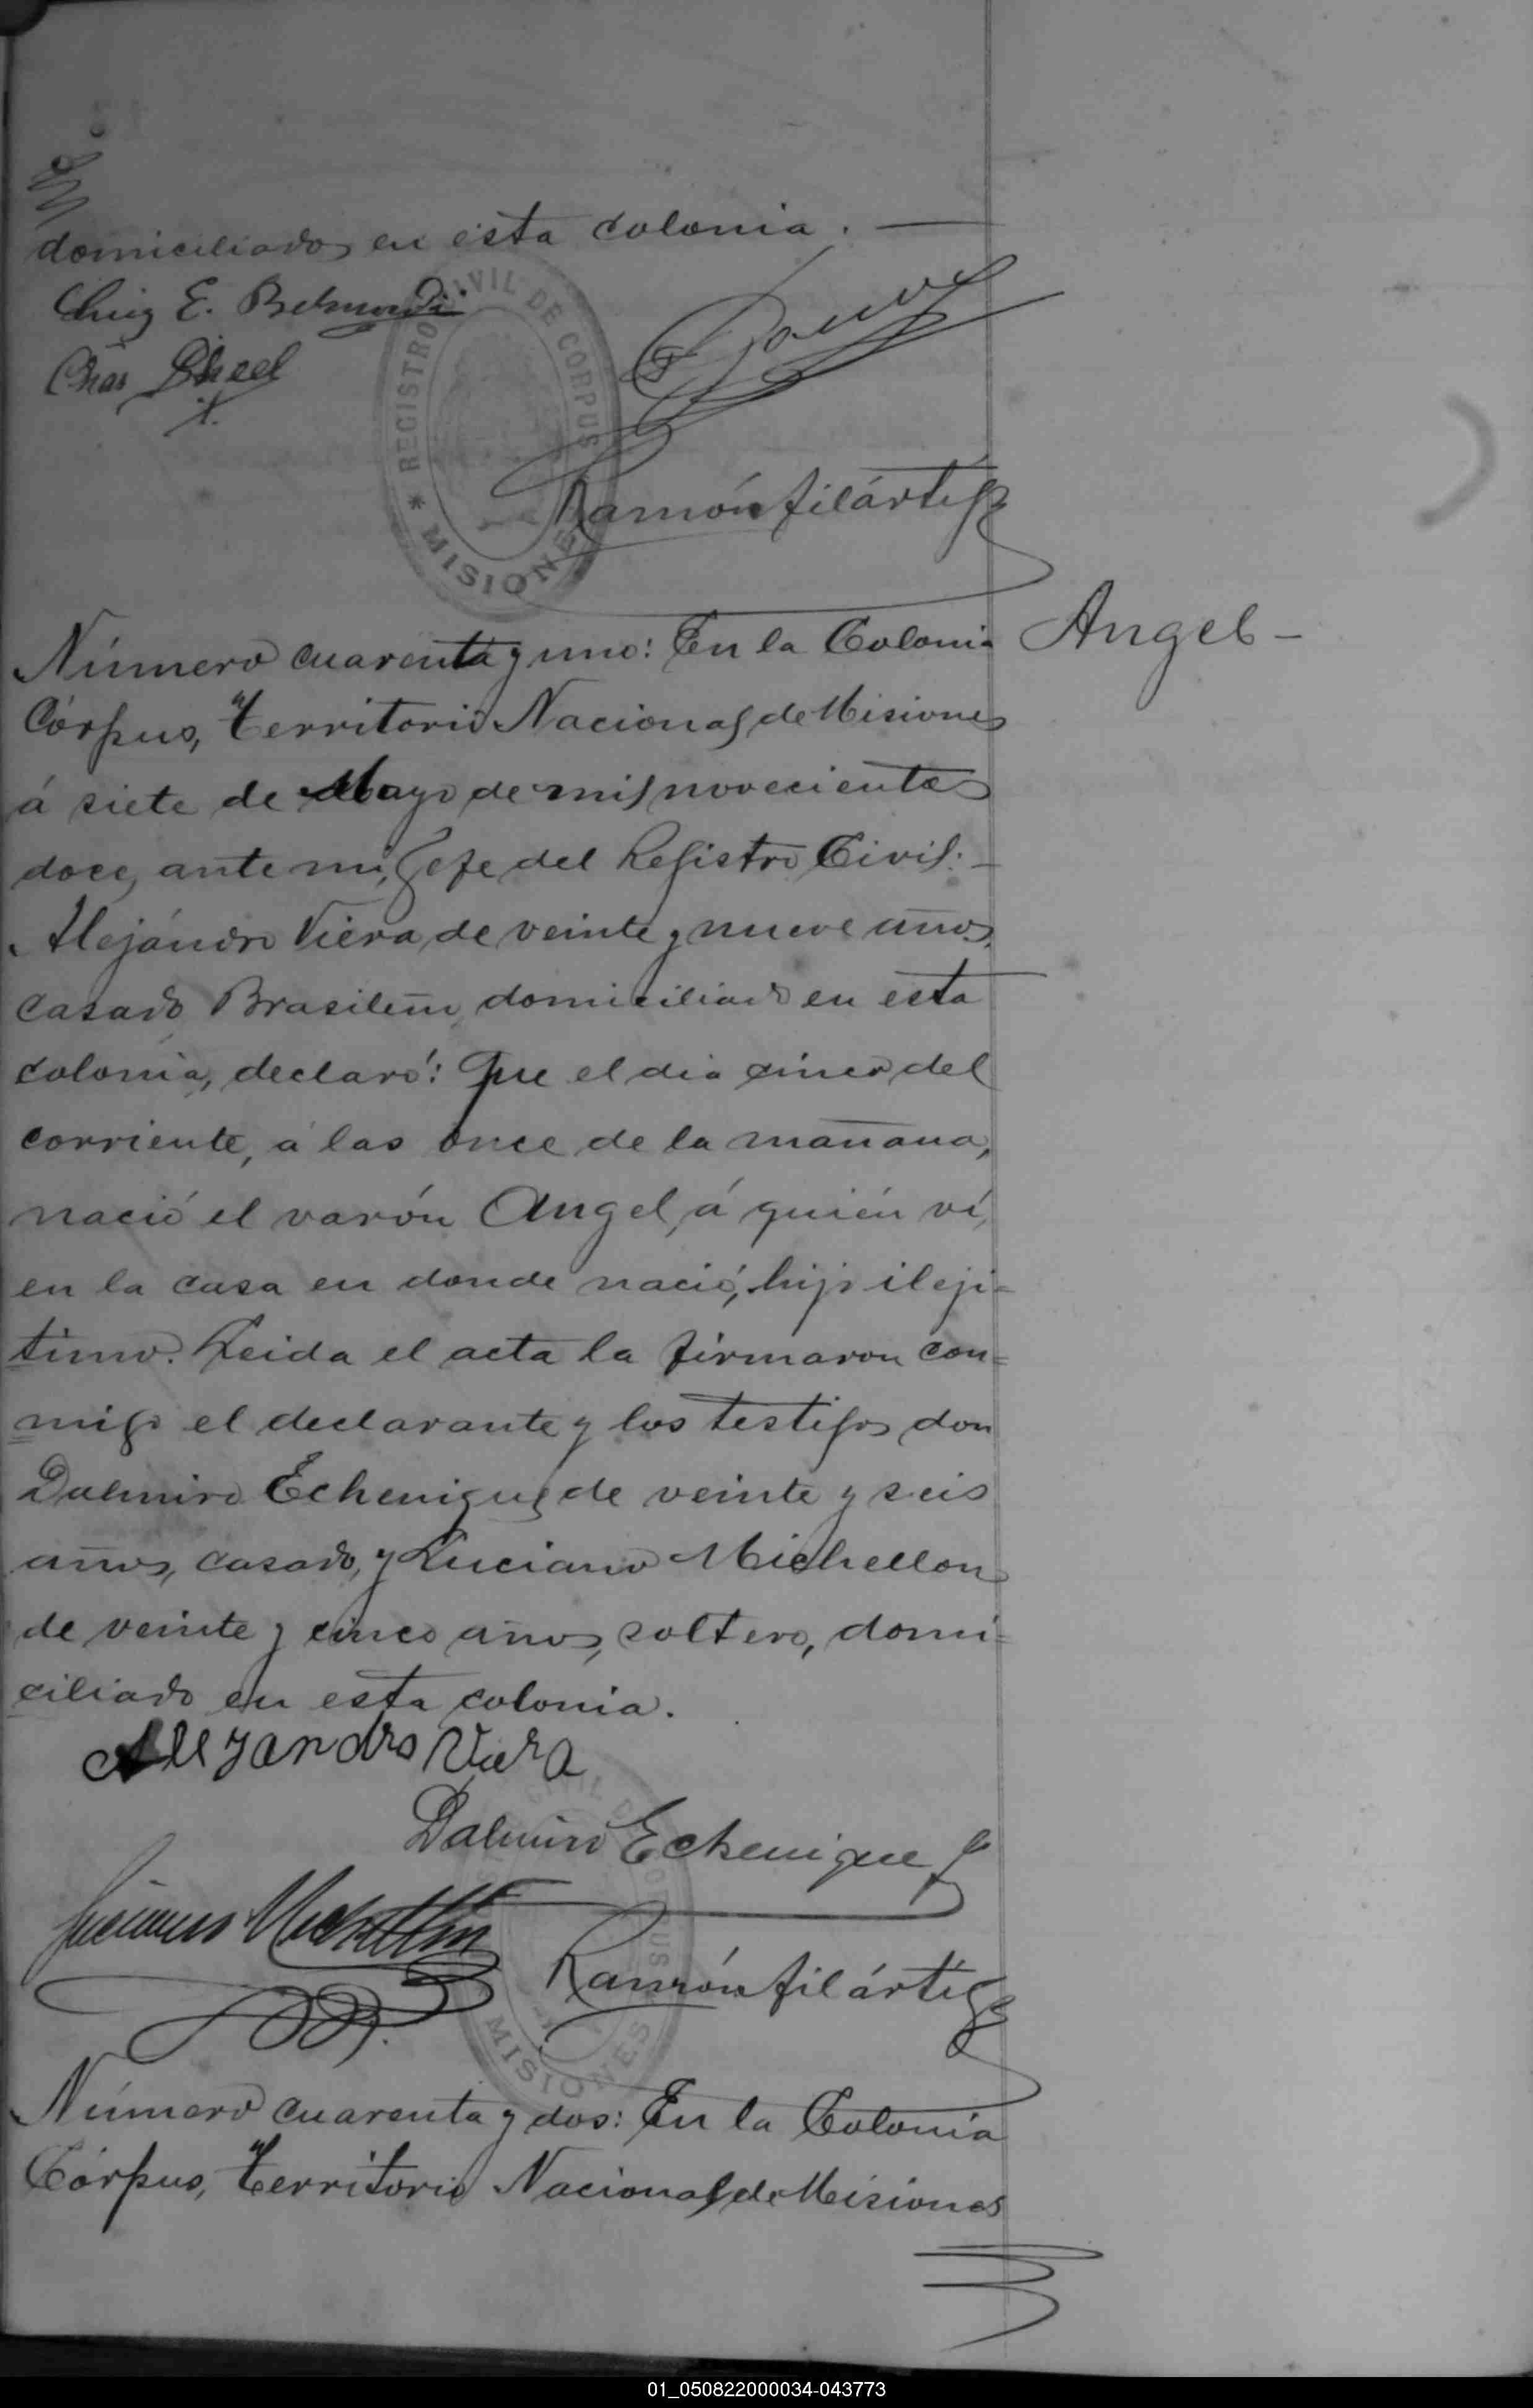 domiciliados en esta colonia. —
Luiz E. Belmondi
Chas Scheel
REGISTRO CIVIL DE CORPUS
* MISIONES
Ramón Filártiga
Número cuarenta y uno: En la Colonia
Angel —
Córpus, Territorio Nacional de Misiones
á siete de Mayo de mil novecientos
doce, ante mi, Gefe del Registro Civil: —
Alejándro Viera, de veinte y nueve años,
casado Brasileño, domiciliado en esta
colonia, declaró: Que el dia cinco del
corriente, á las once de la mañana,
nació el varón Angel, á quién ví,
en la casa en donde nació, hijo ileji=
timo. Leida el acta la firmaron con=
migo el declarante y los testigos don
Dalmiro Echenique, de veinte y seis
años, casado, y Luciano Michellon
de veinte y cinco años, soltero, domi=
ciliado en esta colonia.
Allyandro Viera
Dalmiro Echenique
Luciano Michellon
Ramón Filártiga
MISIONES
Número cuarenta y dos: En la Colonia
Córpus, Territorio Nacional de Misiones
01_050822000034-043773